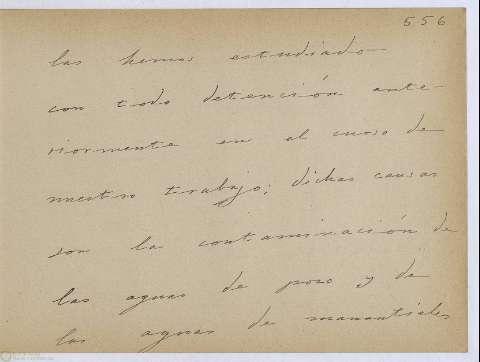 556
las hemos estudiado
con todo detención ante-
riormente en el curso de
nuestro trabajo; dichas causas
son la contaminación de
las aguas de pozo y de
las aguas de manantiales